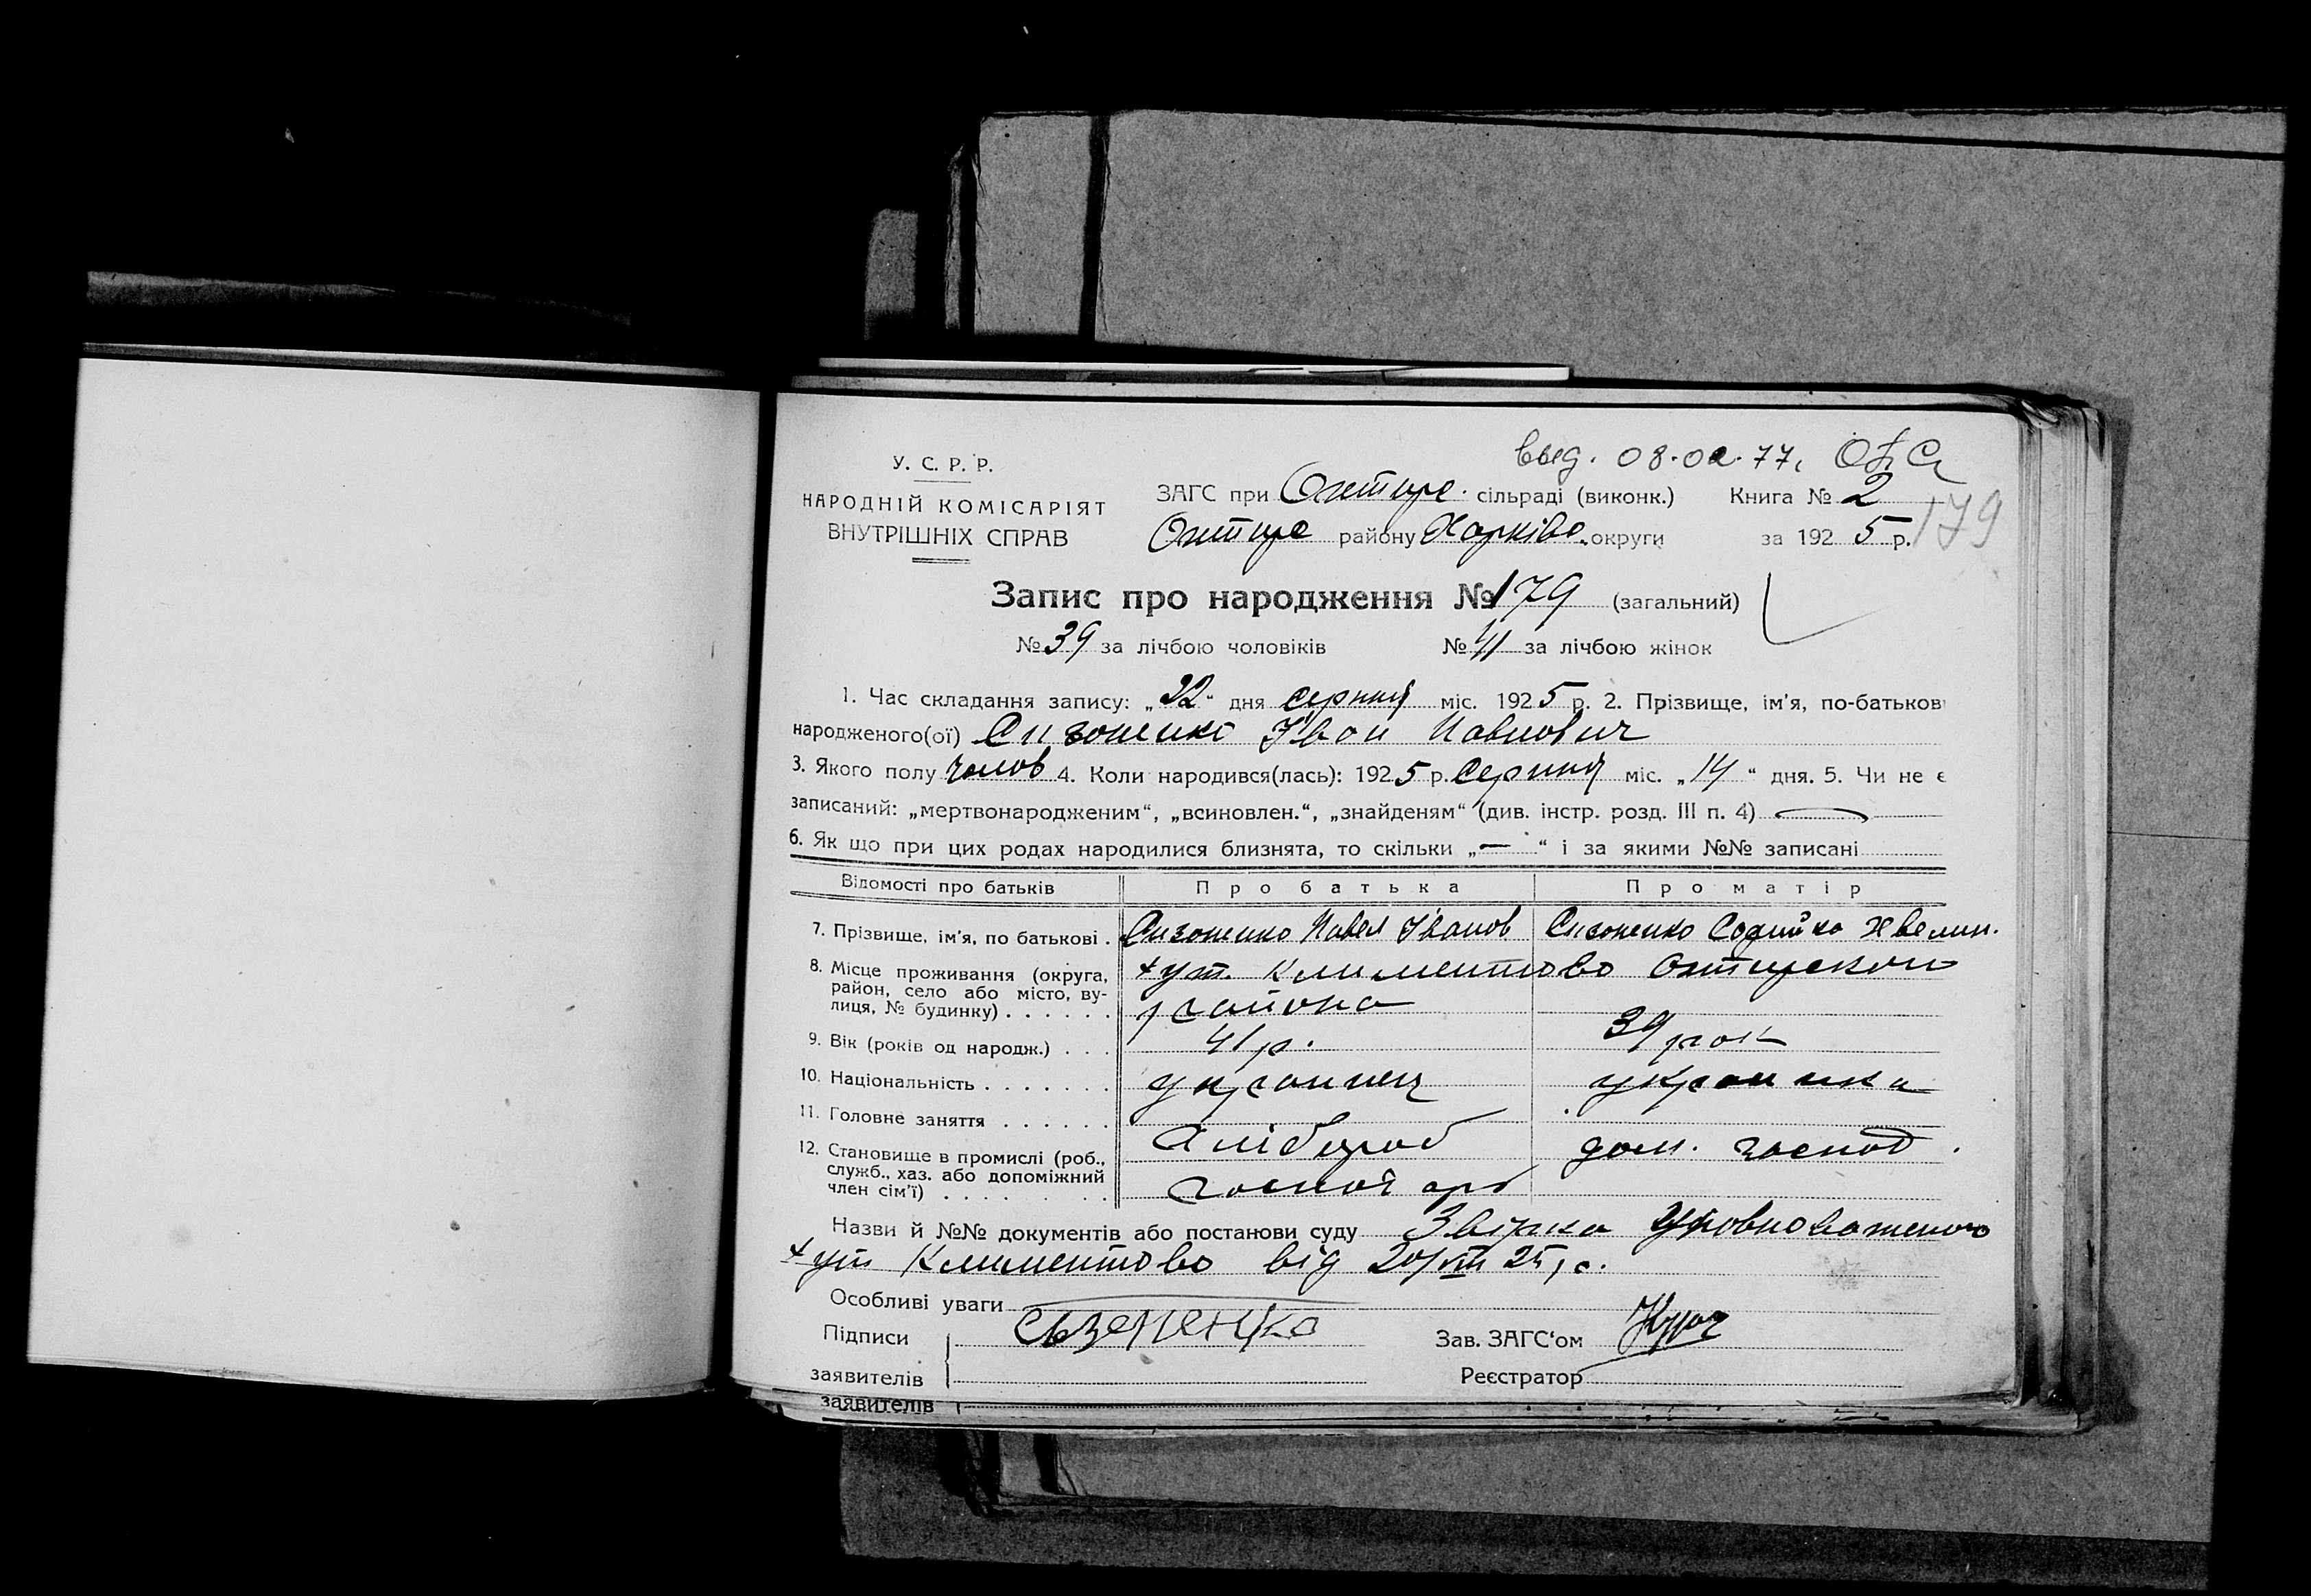 выд. 08.02.77.
У. С. Р. Р.
НАРОДНІЙ КОМІСАРІЯТ
ВНУТРІШНІХ СПРАВ
ЗАГС при Охтирс. сільраді (виконк.) Книга № 2
Охтирс району Харківс. округи за 1925 р.
179
Запис про народження № 179 (загальний)
№ 39 за лічбою чоловіків № 41 за лічбою жінок
1. Час складання запису: „22“ дня серпня міс. 1925 р. 2. Прізвище, ім'я, по-батькові
народженого(ої) Сизоненко Іван Павлович
3. Якого полу чолов 4. Коли народився(лась): 1925 р. Серпня міс. „14“ дня. 5. Чи не є
записаний: „мертвонародженим“, „всиновлен.“, „знайденям“ (див. інстр. розд. III п. 4) —
6. Як що при цих родах народилися близнята, то скільки „—“ і за якими №№ записані
Відомості про батьків Про батька Про матір
7. Прізвище, ім'я, по батькові . Сизоненко Павел Іванов Сизоненко
8. Місце проживання (округа, район, село або місто, вулиця, № будинку) . . . . . . хут. Климентово Охтирского
района
9. Вік (років од народж.) . . . 41 р. 39 рок
10. Національність . . . . . . . украинец украинка
11. Головне заняття . . . . . . Хлібороб дом. господ.
12. Становище в промислі (роб.,
служб., хаз. або допоміжний
член сім'ї) . . . . . . . .
Назви й №№ документів або постанови суду Звірка Уповноваженого
хут Климентово від 20/VIII 25 р.
Особливі уваги
Підписи Сызененко Зав. ЗАГС'ом
заявителів Реєстратор
заявителів